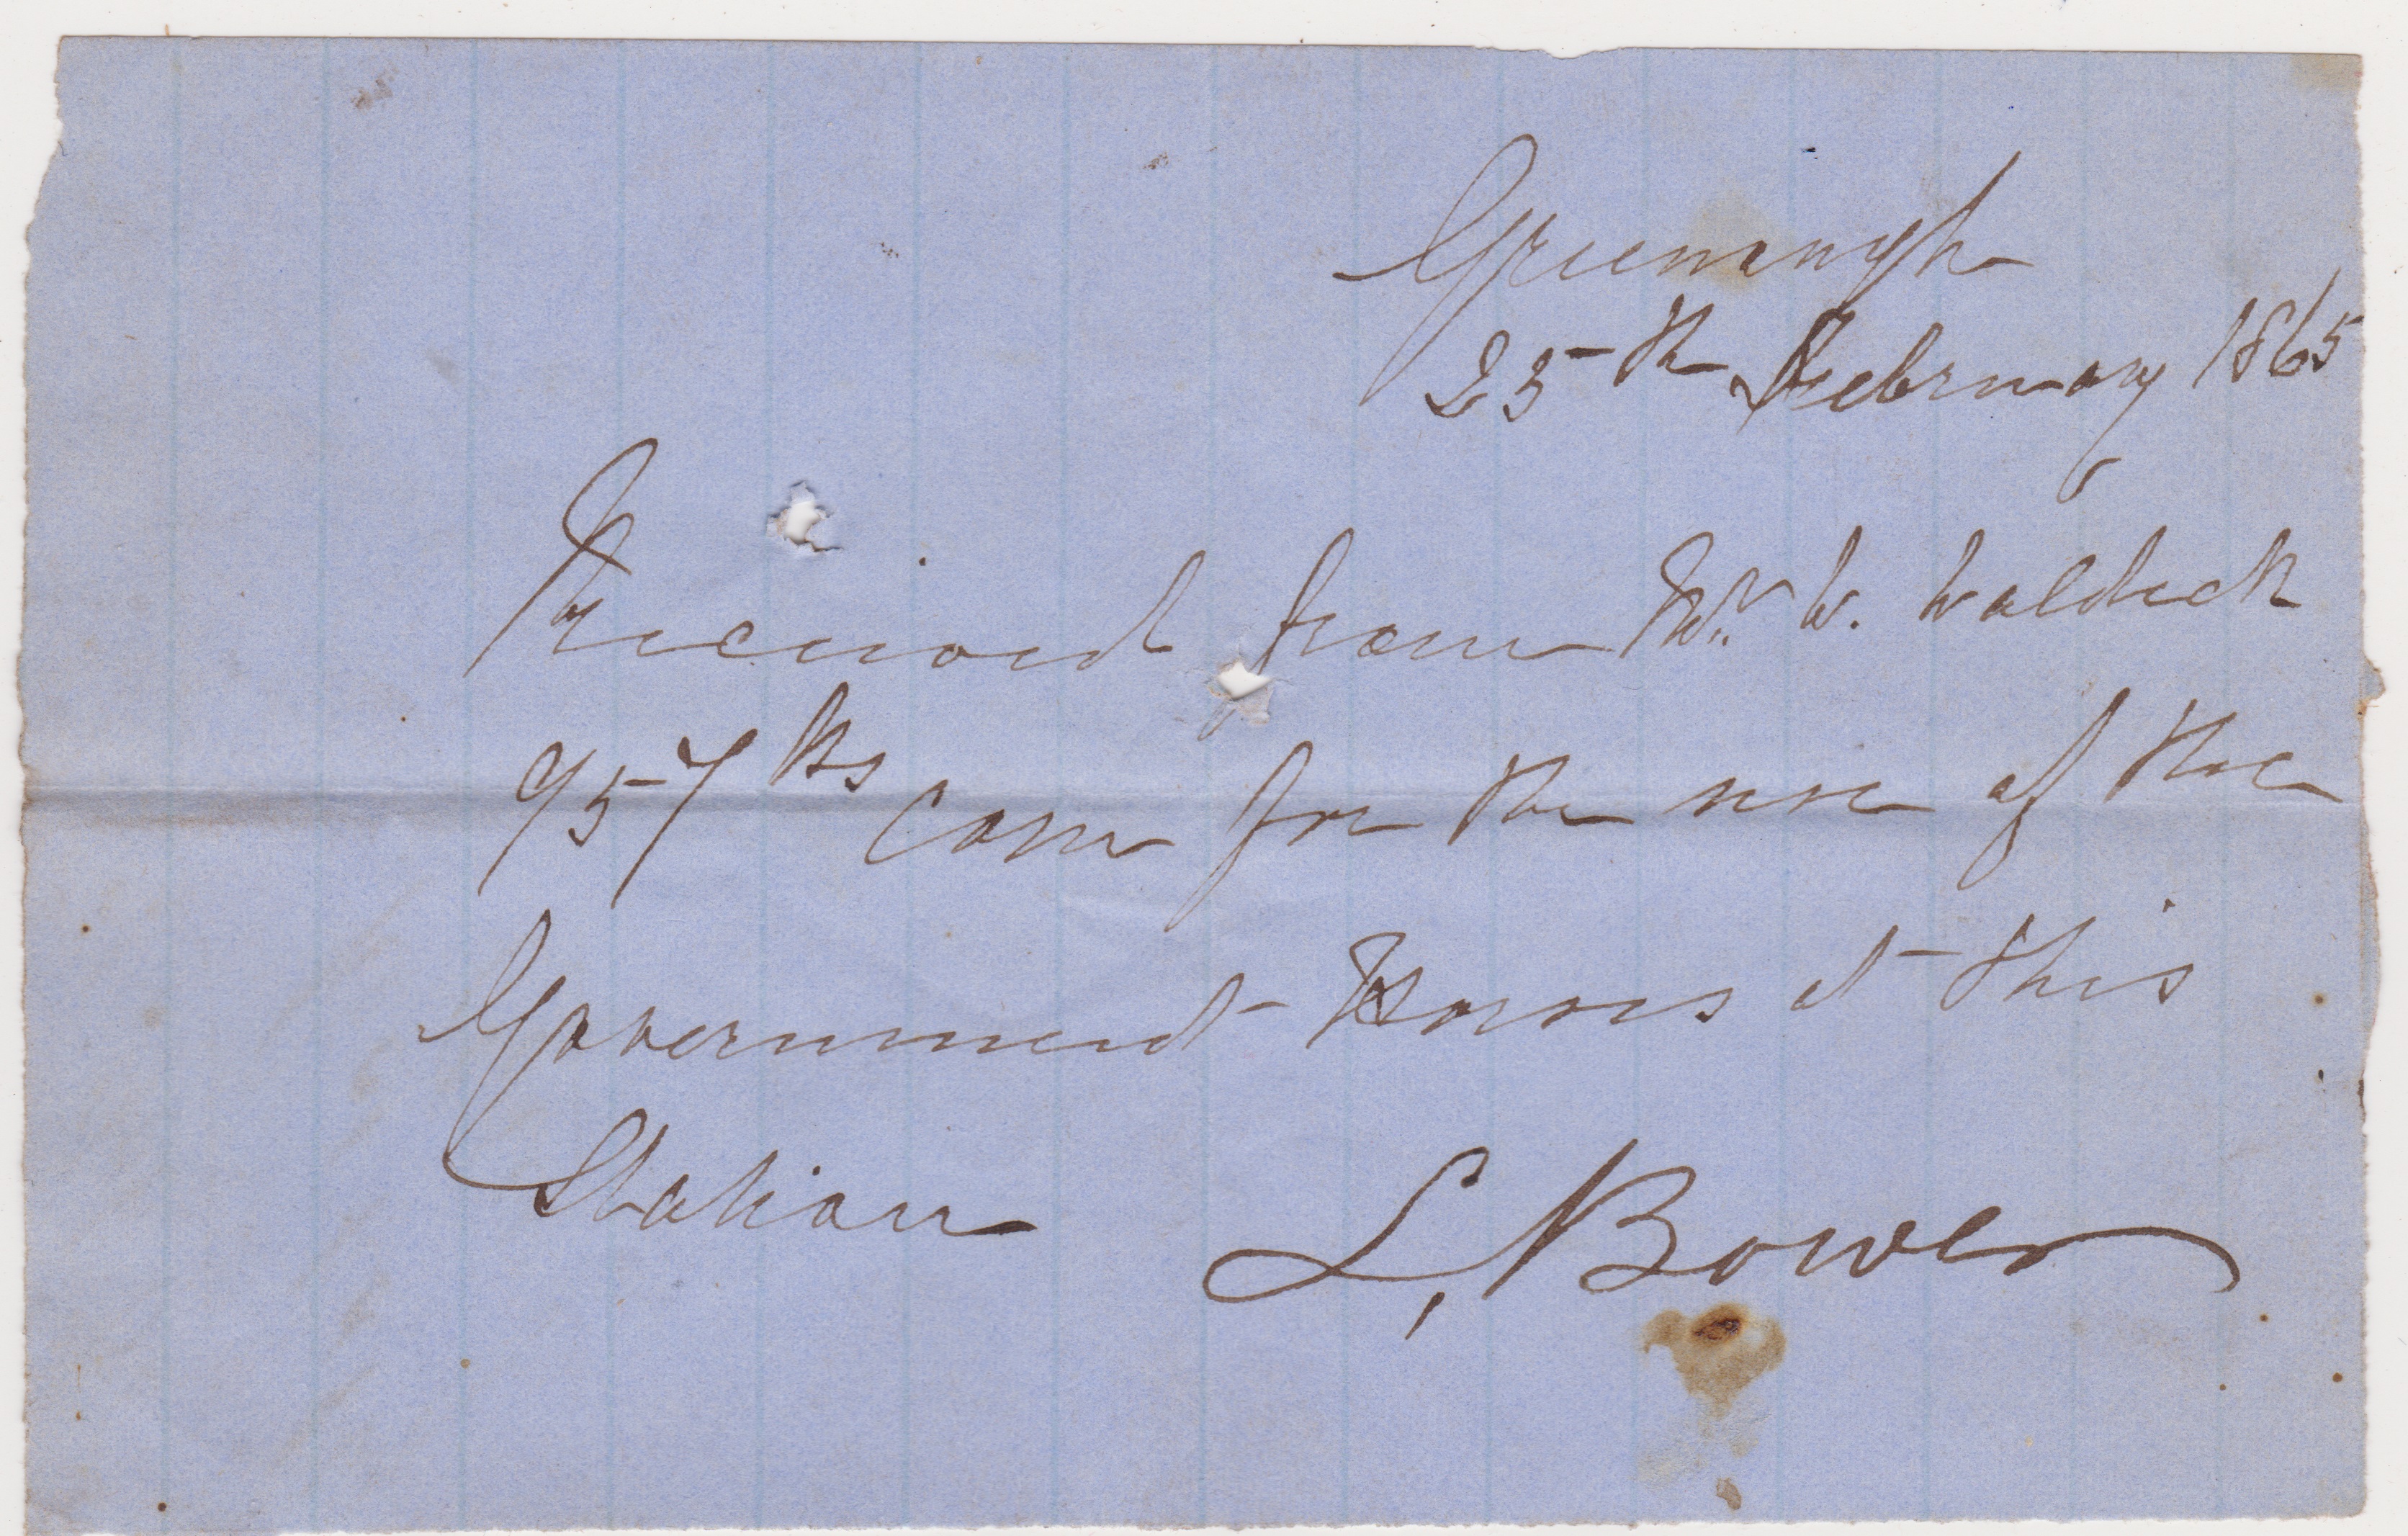 Greenough
25th February 1865
Received from Mr. W. Waldeck
957 lbs Corn for the use of the
Government Horses at this
Station L, Bower